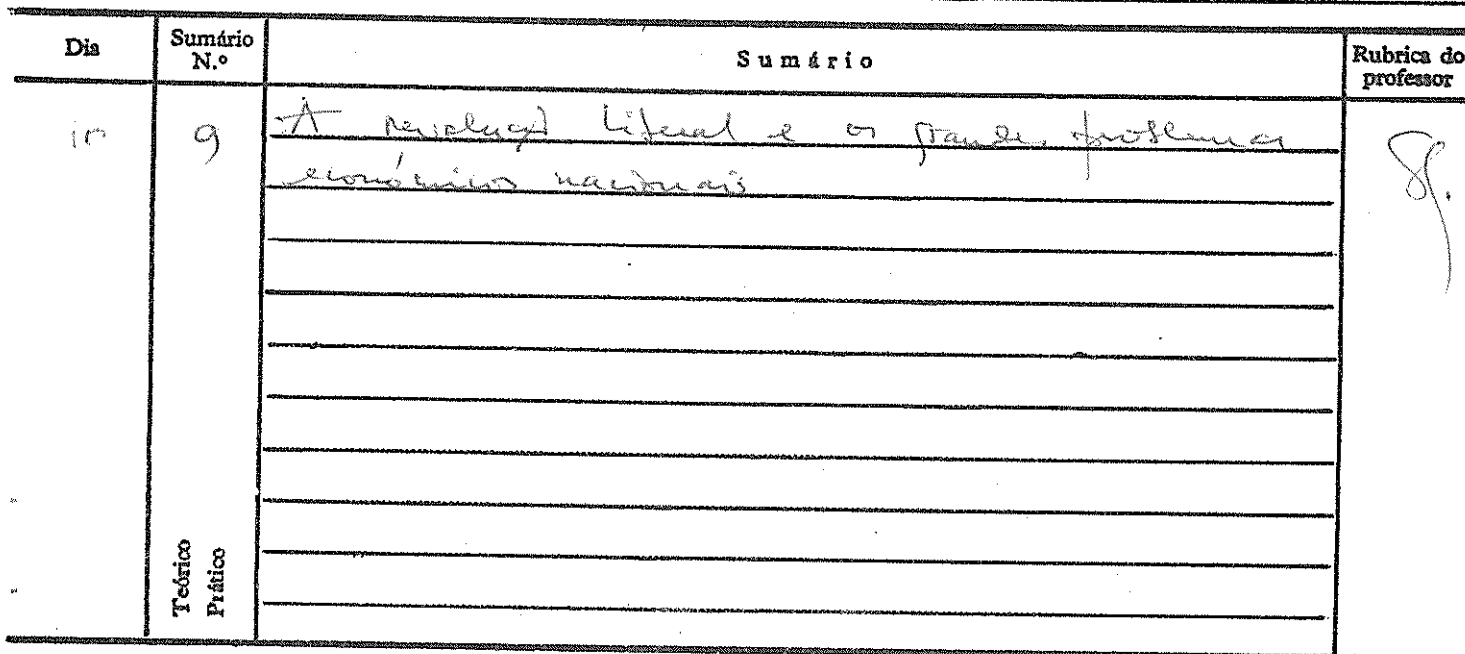 Dia
Sumário N.º
Sumário
Rubrica do professor
9
A revolução liberal e os grandes problemas
económicos nacionais
Teórico
Prático